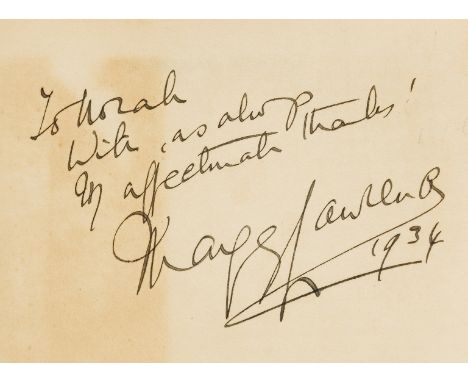 To Norah
With, as always
My affectionate thanks!
Marge Lawrence
1934